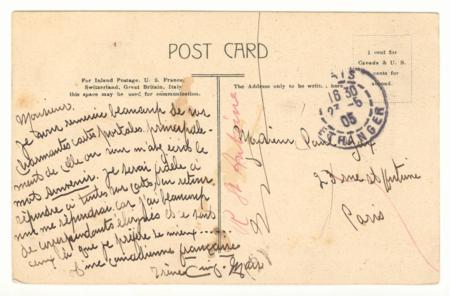 POST CARD
For Inland Postage, U. S. France,
Switzerland, Great Britain, Italy
this space may be used for communication.
The Address only to be written here
1 cent for
Canada & U. S.
cents for
Monsieur.
Je vous remercie beaucoup de vos
charmantes cartes postales, principale-
ment de celle où vous m'avez écrit le
mot souvenir. Je serai fidèle à
répondre à toutes vos cartes, en retour
vous me répondrez car j'ai beaucoup
de correspondants étrangers et ce sont
ceux là que je préfère le mieux
Une canadienne française
Irène Cinq-Mars
Monsieur Paul
rue St Antoine
Paris
R St Antoine
18 30
05
ETRANGER